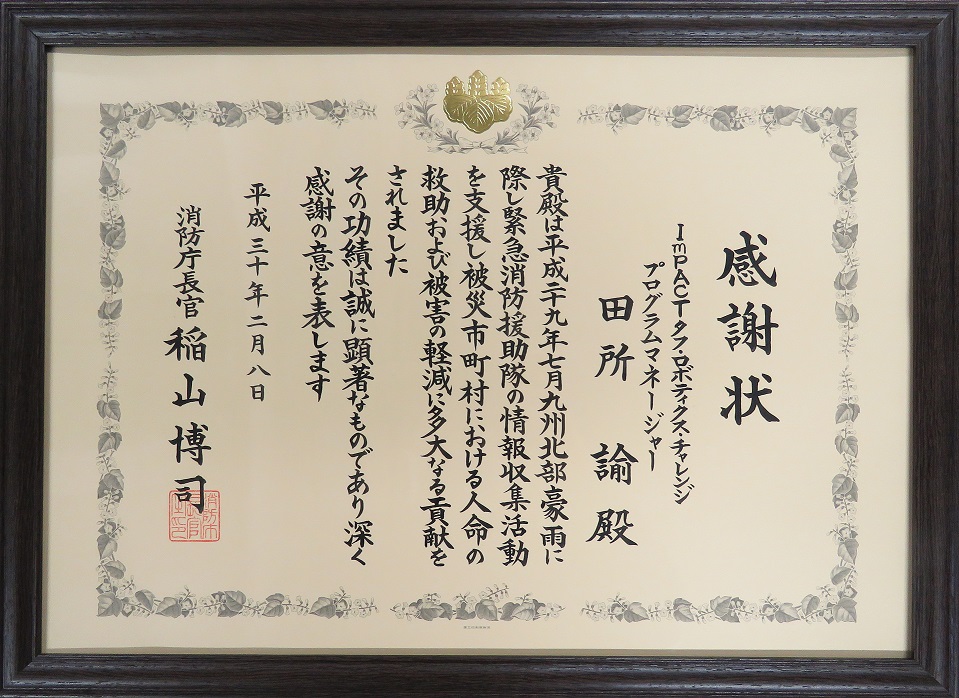 感謝状
ImPACTタフ・ロボティクス・チャレンジ
プログラムマネージャー
田所 諭 殿
貴殿は平成二十九年七月九州北部豪雨に
際し緊急消防援助隊の情報収集活動
を支援し被災市町村における人命の
救助および被害の軽減に多大なる貢献を
されました
その功績は誠に顕著なものであり深く
感謝の意を表します
平成三十年二月八日
消防庁長官 稲山博司